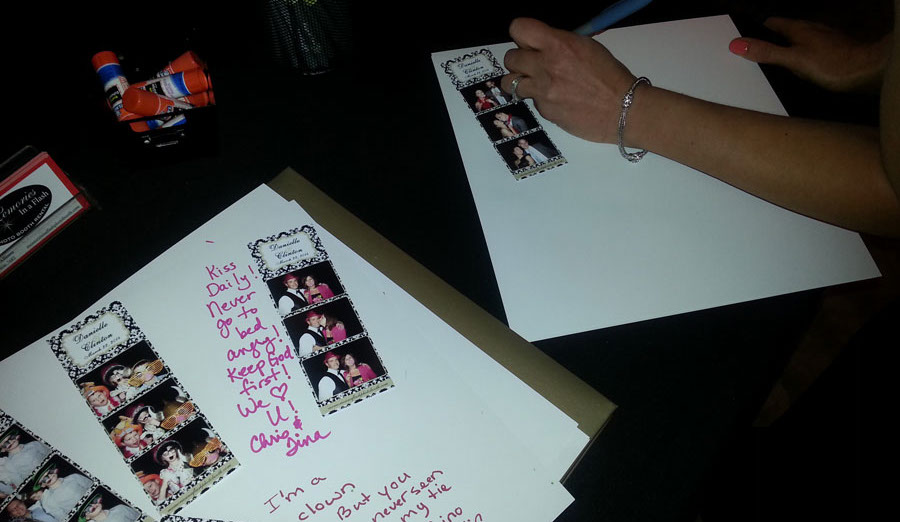 Danielle
Clinton
Memories
In a Flash
PHOTO BOOTH RENTAL
Danielle
Clinton
Kiss
Daily!
Never
go to
bed
angry!
Keep God
first!
We ♡
U!
Chris &
Tina
Danielle
Clinton
I'm a
clown
But you
never seen
my tie